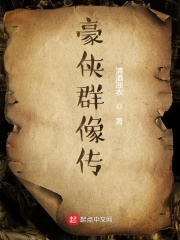 豪侠群像传
著
起点中文网